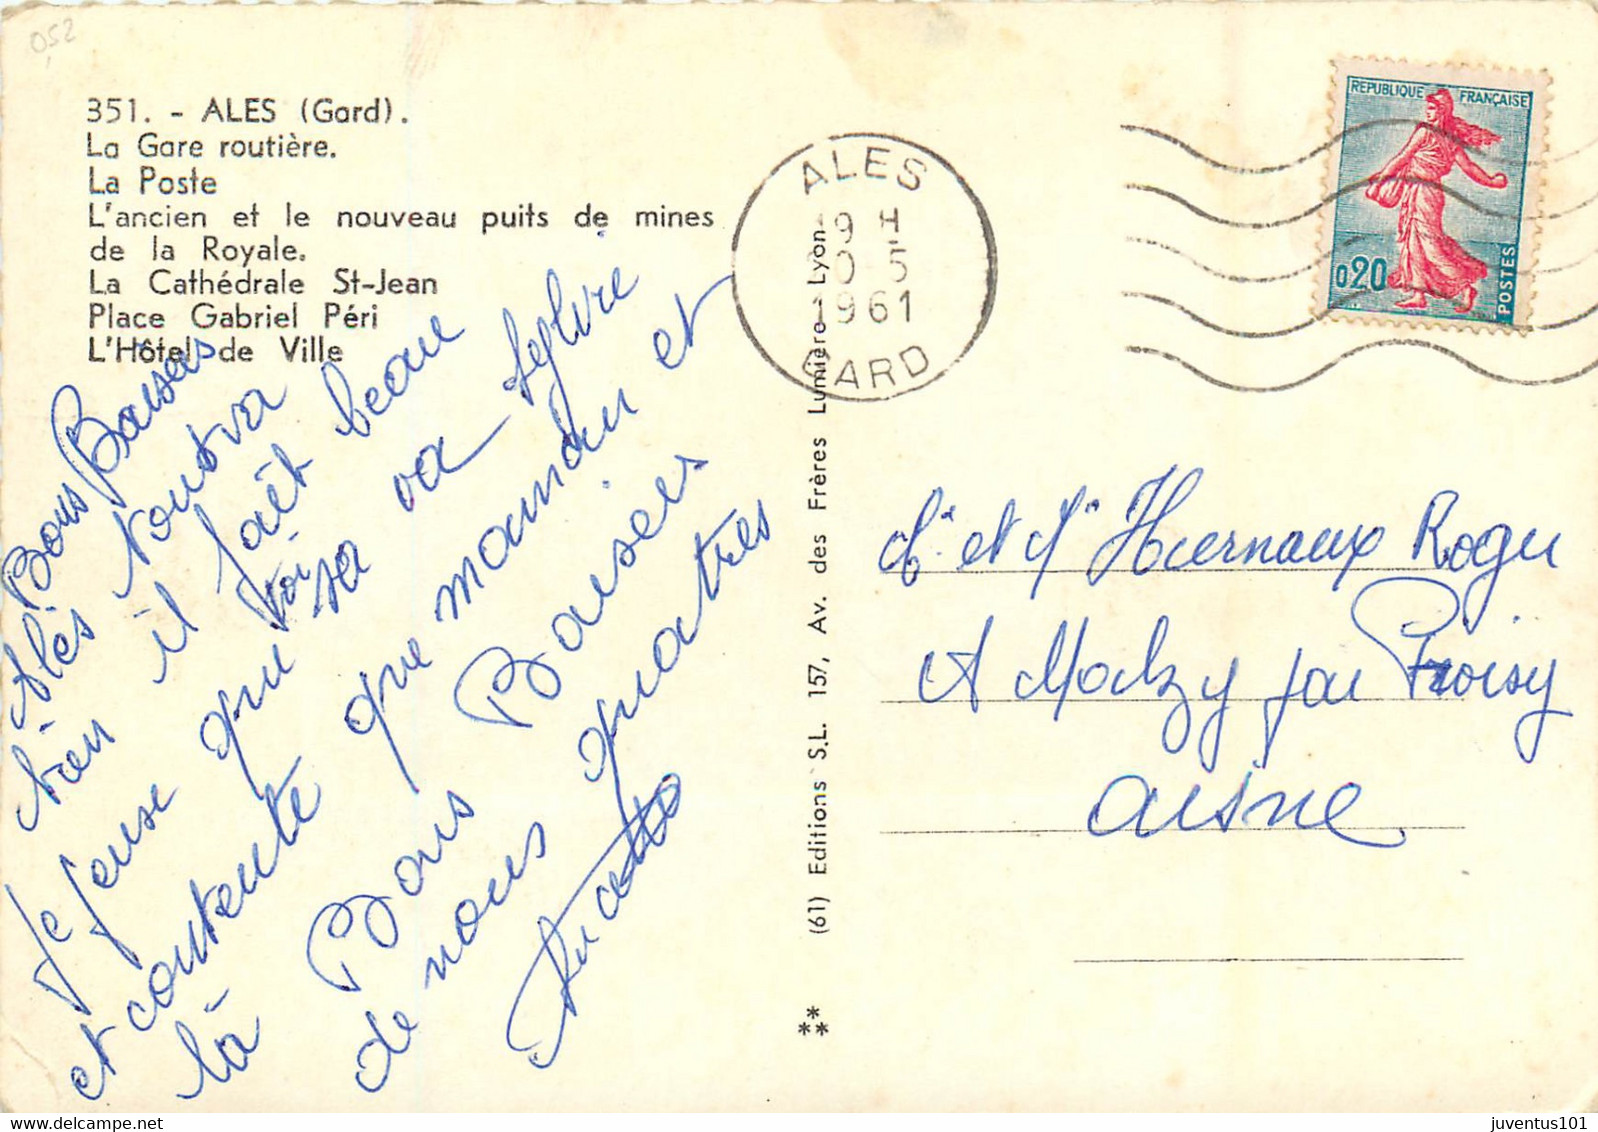 052
351. - ALES (Gard).
La Gare routière.
La Poste
L'ancien et le nouveau puits de mines
de la Royale.
La Cathédrale St-Jean
Place Gabriel Péri
L'Hôtel de Ville
Bons Baisers
Alès tout va
bien il fait beau
Je pense que sa va
et contente que maman et
là Bons Baisers
de nous quatres
ALES
19 H
0-5
1961
GARD
REPUBLIQUE FRANÇAISE
0,20
POSTES
(61) Editions S.L. 157, Av. des Frères Lumière - Lyon
Mr et Me Hiernaux Roger
A Malzy par Proisy
aisne
https://www.delcampe.net
juventus101